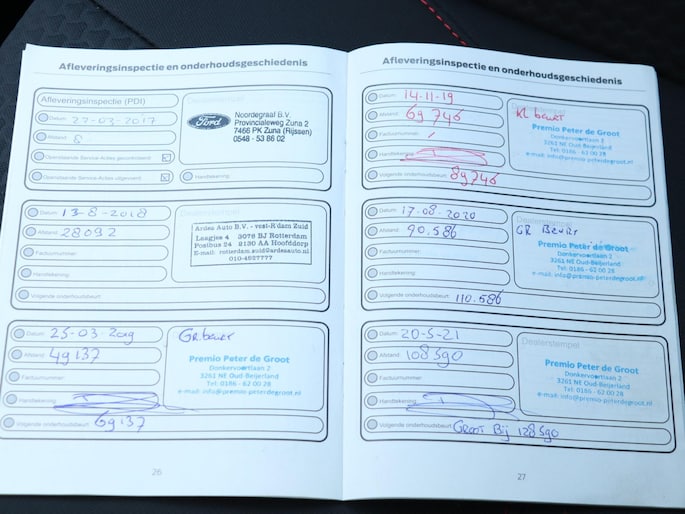 Afleveringsinspectie en onderhoudsgeschiedenis
Afleveringsinspectie (PDI)
Datum: 27-03-2017
Afstand: 8
Openstaande Service-Acties gecontroleerd
Openstaande Service-Acties uitgevoerd
Ford
Noordegraaf B.V.
Provincialeweg Zuna 2
7466 PK Zuna (Rijssen)
0548 - 53 86 02
Handtekening:
Datum: 13-8-2018
Afstand: 28092
Factuurnummer:
Handtekening:
Volgende onderhoudsbeurt:
Dealerstempel
Ardea Auto B.V. - vest-R'dam Zuid
Laagjes 4 3076 BJ Rotterdam
Postbus 24 2130 AA Hoofddorp
E-mail: rotterdam.zuid@ardeaauto.nl
010-4927777
Datum: 25-03-2019
Afstand: 49137
Factuurnummer:
Handtekening:
Volgende onderhoudsbeurt: 69137
GR beurt
Premio Peter de Groot
Donkervoortlaan 2
3261 NE Oud-Beijerland
Tel: 0186 - 62 00 28
e-mail: info@premio-peterdegroot.nl
26
Afleveringsinspectie en onderhoudsgeschiedenis
Datum: 14-11-19
Afstand: 69746
Factuurnummer:
Handtekening:
Volgende onderhoudsbeurt: 89746
KL beurt
Premio Peter de Groot
Donkervoortlaan 2
3261 NE Oud-Beijerland
Tel: 0186 - 62 00 28
e-mail: info@premio-peterdegroot.nl
Datum: 17-08-2020
Afstand: 90.586
Factuurnummer:
Handtekening:
Volgende onderhoudsbeurt: 110.586
GR Beurt
Premio Peter de Groot
Donkervoortlaan 2
3261 NE Oud-Beijerland
Tel: 0186 - 62 00 28
e-mail: info@premio-peterdegroot.nl
Datum: 20-5-21
Afstand: 108590
Factuurnummer:
Handtekening:
Volgende onderhoudsbeurt: Groot Bij 128590
Dealerstempel
Premio Peter de Groot
Donkervoortlaan 2
3261 NE Oud-Beijerland
Tel: 0186 - 62 00 28
e-mail: info@premio-peterdegroot.nl
27